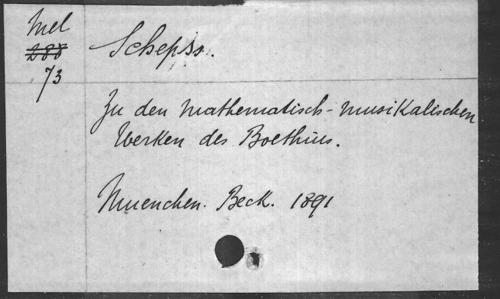 Mel
288
73
Schepss.
Zu den mathematisch-musikalischen
Werken des Boethius.
Muenchen. Beck. 1891